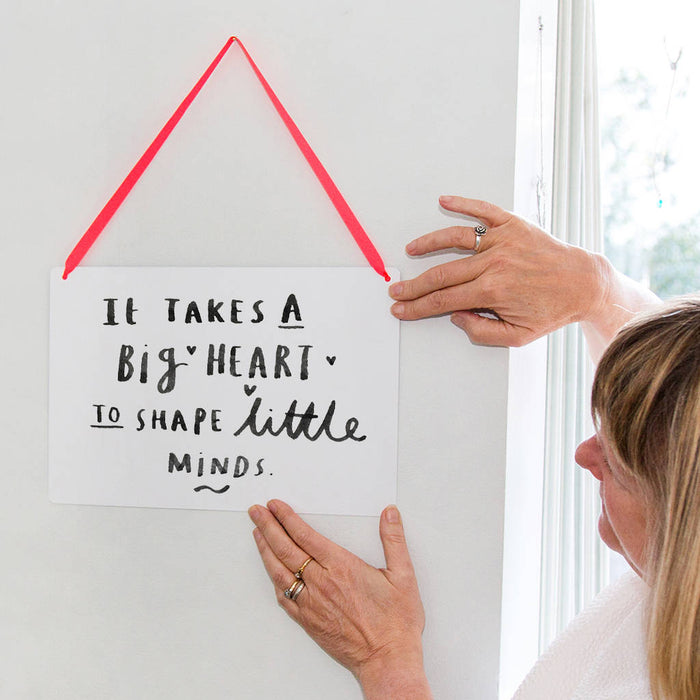 IT TAKES A
Big HEART
TO SHAPE little
MiNDS.